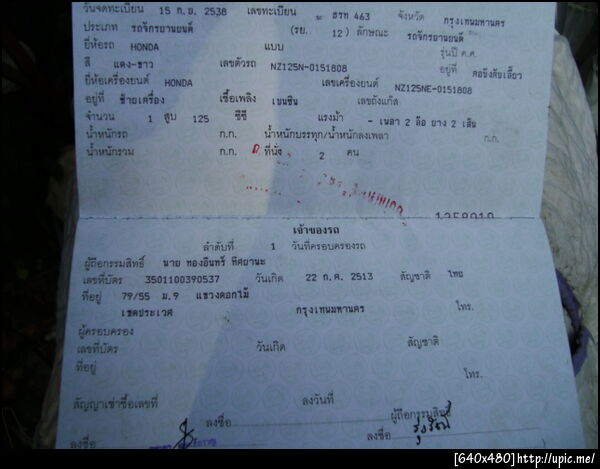 วันจดทะเบียน 15 ก.ย. 2538 เลขทะเบียน ธรท 463 จังหวัด กรุงเทพมหานคร
ประเภท รถจักรยานยนต์ (รย. 12) ลักษณะ รถจักรยานยนต์
ยี่ห้อรถ HONDA แบบ รุ่นปี ค.ศ.
สี แดง-ขาว เลขตัวรถ NZ125N-0151808 อยู่ที่ คอบังคับเลี้ยว
ยี่ห้อเครื่องยนต์ HONDA เลขเครื่องยนต์ NZ125NE-0151808
อยู่ที่ ซ้ายเครื่อง เชื้อเพลิง เบนซิน เลขถังแก๊ส
จำนวน 1 สูบ 125 ซีซี แรงม้า - เพลา 2 ล้อ ยาง 2 เส้น
น้ำหนักรถ ก.ก. น้ำหนักบรรทุก/น้ำหนักลงเพลา ก.ก.
น้ำหนักรวม ก.ก. ที่นั่ง 2 คน
เจ้าของรถ
ลำดับที่ 1 วันที่ครอบครองรถ
ผู้ถือกรรมสิทธิ์ นาย ทองอินทร์ ทิศยานะ
เลขที่บัตร 3501100390537 วันเกิด 22 ก.ค. 2513 สัญชาติ ไทย
ที่อยู่ 79/55 ม.9 แขวงดอกไม้
เขตประเวศ กรุงเทพมหานคร โทร.
ผู้ครอบครอง
เลขที่บัตร วันเกิด สัญชาติ
ที่อยู่ โทร.
สัญญาเช่าซื้อเลขที่ ลงวันที่
ลงชื่อ ผู้ถือกรรมสิทธิ์
ลงชื่อ ลงชื่อ
[640x480]http://upic.me/